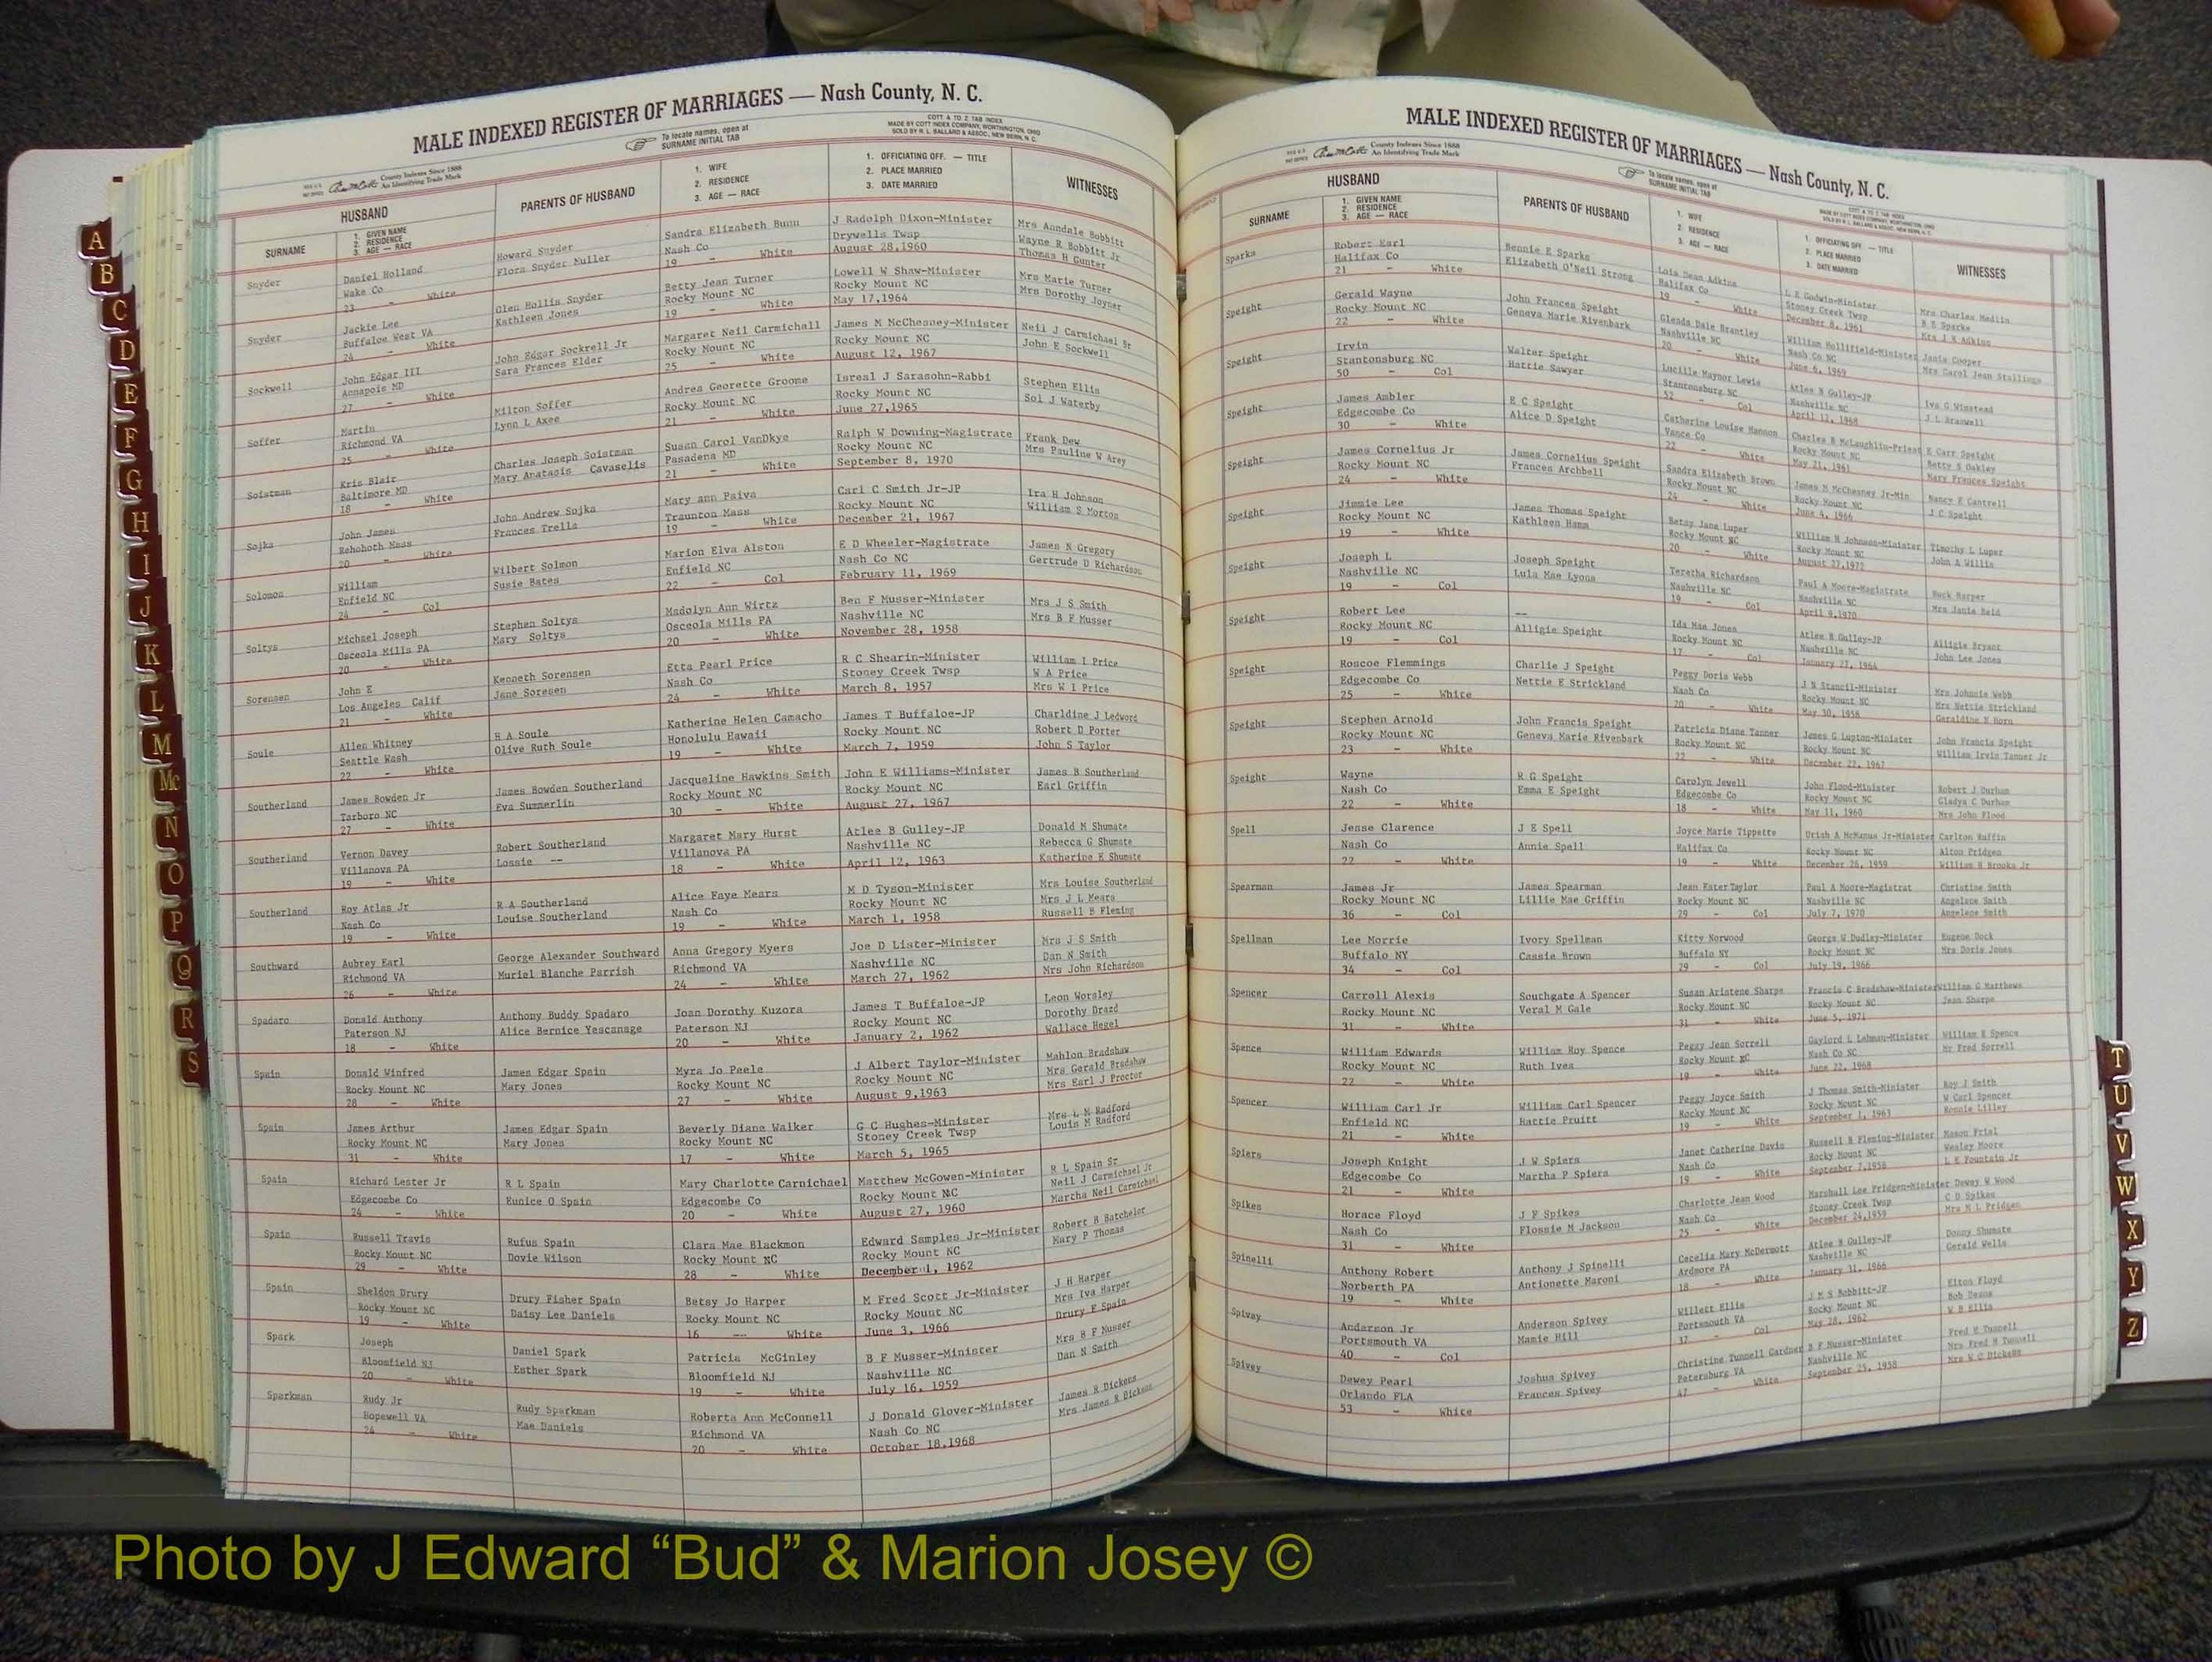 MALE INDEXED REGISTER OF MARRIAGES — Nash County, N. C.
To locate names, open at
SURNAME INITIAL TAB
COTT A TO Z TAB INDEX
MADE BY COTT INDEX COMPANY, WORTHINGTON, OHIO
SOLD BY R. L. BALLARD & ASSOC., NEW BERN, N. C.
County Indexes Since 1888
An Identifying Trade Mark
HUSBAND
SURNAME
1. GIVEN NAME
2. RESIDENCE
3. AGE — RACE
PARENTS OF HUSBAND
1. WIFE
2. RESIDENCE
3. AGE — RACE
1. OFFICIATING OFF. — TITLE
2. PLACE MARRIED
3. DATE MARRIED
WITNESSES
Snyder Daniel Holland Howard Snyder Sandra Elizabeth Bunn J Radolph Dixon-Minister Mrs Anndale Bobbitt
Wake Co Flora Snyder Muller Nash Co Drywells Twsp Wayne R Bobbitt Jr
23 - White 19 - White August 28,1960 Thomas H Gunter
Snyder Jackie Lee Glen Hollis Snyder Betty Jean Turner Lowell W Shaw-Minister Mrs Marie Turner
Buffaloe West VA Kathleen Jones Rocky Mount NC Rocky Mount NC Mrs Dorothy Joyner
24 - White 19 - White May 17,1964
Sockwell John Edgar III John Edgar Sockrell Jr Margaret Neil Carmichall James M McChesney-Minister Neil J Carmichael Sr
Annapois MD Sara Frances Elder Rocky Mount NC Rocky Mount NC John E Sockwell
27 - White 25 - White August 12, 1967
Soffer Martin Milton Soffer Andrea Georette Groome Isreal J Sarasohn-Rabbi Stephen Ellis
Richmond VA Lynn L Axee Rocky Mount NC Rocky Mount NC Sol J Waterby
25 - White 21 - White June 27,1965
Soistman Kris Blair Charles Joseph Soistman Susan Carol VanDkye Ralph W Downing-Magistrate Frank Dew
Baltimore MD Mary Anatasis Cavaselis Pasadena MD Rocky Mount NC Mrs Pauline W Arey
18 - White 21 - White September 8, 1970
Sojka John James John Andrew Sojka Mary ann Paiva Carl C Smith Jr-JP Ira H Johnson
Rehohoth Mass Frances Trella Traunton Mass Rocky Mount NC William S Morton
20 - White 19 - White December 21, 1967
Solomon William Wilbert Solmon Marion Elva Alston E D Wheeler-Magistrate James N Gregory
Enfield NC Susie Bates Enfield NC Nash Co NC Gertrude D Richardson
24 - Col 22 - Col February 11, 1969
Soltys Michael Joseph Stephen Soltys Madolyn Ann Wirtz Ben F Musser-Minister Mrs J S Smith
Osceola Mills PA Mary Soltys Osceola Mills PA Nashville NC Mrs B F Musser
20 - White 20 - White November 28, 1958
Sorensen John E Kenneth Sorensen Etta Pearl Price R C Shearin-Minister William I Price
Los Angeles Calif Jane Soresen Nash Co Stoney Creek Twsp W A Price
21 - White 24 - White March 8, 1957 Mrs W I Price
Soule Allen Whitney H A Soule Katherine Helen Camacho James T Buffaloe-JP Charldine J Ledword
Seattle Wash Olive Ruth Soule Honolulu Hawaii Rocky Mount NC Robert D Porter
22 - White 19 - White March 7, 1959 John S Taylor
Southerland James Bowden Jr James Bowden Southerland Jacqueline Hawkins Smith John E Williams-Minister James B Southerland
Tarboro NC Eva Summerlin Rocky Mount NC Rocky Mount NC Earl Griffin
27 - White 30 - White August 27, 1967
Southerland Vernon Davey Robert Southerland Margaret Mary Hurst Atlee B Gulley-JP Donald M Shumate
Villanova PA Lossie -- Villanova PA Nashville NC Rebecca G Shumate
19 - White 18 - White April 12, 1963 Katherine E Shumate
Southerland Roy Atlas Jr R A Southerland Alice Faye Mears M D Tyson-Minister Mrs Louise Southerland
Nash Co Louise Southerland Nash Co Rocky Mount NC Mrs J L Mears
19 - White 19 - White March 1, 1958 Russell B Fleming
Southward Aubrey Earl George Alexander Southward Anna Gregory Myers Joe D Lister-Minister Mrs J S Smith
Richmond VA Muriel Blanche Parrish Richmond VA Nashville NC Dan N Smith
26 - White 24 - White March 27, 1962 Mrs John Richardson
Spadaro Donald Anthony Anthony Buddy Spadaro Joan Dorothy Kuzora James T Buffaloe-JP Leon Worsley
Paterson NJ Alice Bernice Yescanage Paterson NJ Rocky Mount NC Dorothy Drazd
18 - White 20 - White January 2, 1962 Wallace Hegel
Spain Donald Winfred James Edgar Spain Myra Jo Peele J Albert Taylor-Minister Mahlon Bradshaw
Rocky Mount NC Mary Jones Rocky Mount NC Rocky Mount NC Mrs Gerald Bradshaw
28 - White 27 - White August 9,1963 Mrs Earl J Proctor
Spain James Arthur James Edgar Spain Beverly Diane Walker G C Hughes-Minister Mrs L M Radford
Rocky Mount NC Mary Jones Rocky Mount NC Stoney Creek Twsp Louis M Radford
31 - White 17 - White March 5, 1965
Spain Richard Lester Jr R L Spain Mary Charlotte Carnichael Matthew McGowen-Minister R L Spain Sr
Edgecombe Co Eunice O Spain Edgecombe Co Rocky Mount NC Neil J Carmichael Jr
24 - White 20 - White August 27, 1960 Martha Neil Carmichael
Spain Russell Travis Rufus Spain Clara Mae Blackmon Edward Samples Jr-Minister Robert B Batchelor
Rocky Mount NC Dovie Wilson Rocky Mount NC Rocky Mount NC Mary P Thomas
29 - White 28 - White December 1, 1962
Spain Sheldon Drury Drury Fisher Spain Betsy Jo Harper M Fred Scott Jr-Minister J H Harper
Rocky Mount NC Daisy Lee Daniels Rocky Mount NC Rocky Mount NC Mrs Iva Harper
19 - White 16 -- White June 3, 1966 Drury F Spain
Spark Joseph Daniel Spark Patricia McGinley B F Musser-Minister Mrs B F Musser
Bloomfield NJ Esther Spark Bloomfield NJ Nashville NC Dan N Smith
20 - White 19 - White July 16, 1959
Sparkman Rudy Jr Rudy Sparkman Roberta Ann McConnell J Donald Glover-Minister James R Dickens
Hopewell VA Mae Daniels Richmond VA Nash Co NC Mrs James R Dickens
24 - White 20 - White October 18,1968
MALE INDEXED REGISTER OF MARRIAGES — Nash County, N. C.
County Indexes Since 1888
An Identifying Trade Mark
To locate names, open at
SURNAME INITIAL TAB
HUSBAND
SURNAME
1. GIVEN NAME
2. RESIDENCE
3. AGE — RACE
PARENTS OF HUSBAND
1. WIFE
2. RESIDENCE
3. AGE — RACE
1. OFFICIATING OFF. — TITLE
2. PLACE MARRIED
3. DATE MARRIED
WITNESSES
Sparks Robert Earl Bennie E Sparks Lois Dean Adkins L E Godwin-Minister Mrs Charles Medlin
Halifax Co Elizabeth O'Neil Strong Halifax Co Stoney Creek Twsp B E Sparks
21 - White 19 - White December 8, 1961
Speight Gerald Wayne John Frances Speight Glenda Dale Brantley William Hollifield-Minister Janie Cooper
Rocky Mount NC Geneva Marie Rivenbark Nashville NC Nash Co NC Mrs Carol Jean Stallings
22 - White 20 - White June 6, 1969
Speight Irvin Walter Speight Lucille Maynor Lewis Atlee B Gulley-JP Iva G Winstead
Stantonsburg NC Hattie Sawyer Stantonsburg NC Nashville NC J L Braswell
50 - Col 52 - Col April 12, 1968
Speight James Ambler E C Speight Catherine Louise Hanson Charles B McLaughlin-Priest E Carr Speight
Edgecombe Co Alice D Speight Vance Co Rocky Mount NC Betty S Oakley
30 - White 22 - White May 21, 1961 Mary Frances Speight
Speight James Cornelius Jr James Cornelius Speight Sandra Elizabeth Brown James M McChesney Jr-Min Nancy E Cantrell
Rocky Mount NC Frances Archbell Rocky Mount NC Rocky Mount NC J C Speight
24 - White 24 - White June 4, 1966
Speight Jimmie Lee James Thomas Speight Betsy Jane Luper William H Johnson-Minister Timothy L Luper
Rocky Mount NC Kathleen Hamm Rocky Mount NC Rocky Mount NC John A Willis
19 - White 20 - White August 27,1972
Speight Joseph L Joseph Speight Teretha Richardson Paul A Moore-Magistrate Buck Harper
Nashville NC Lula Mae Lyons Nashville NC Nashville NC Mrs Janie Reid
19 - Col 19 - Col April 9,1970
Speight Robert Lee -- Ida Mae Jones Atlee B Gulley-JP Alligie Bryant
Rocky Mount NC Alligie Speight Rocky Mount NC Nashville NC John Lee Jones
19 - Col 17 - Col January 27, 1964
Speight Roscoe Flemmings Charlie J Speight Peggy Doris Webb J N Stancil-Minister Mrs Johnnie Webb
Edgecombe Co Nettie E Strickland Nash Co Rocky Mount NC Mrs Nettie Strickland
25 - White 20 - White May 30, 1958 Geraldine K Horn
Speight Stephen Arnold John Francis Speight Patricia Diane Tanner James G Lupton-Minister John Francis Speight
Rocky Mount NC Geneva Marie Rivenbark Rocky Mount NC Rocky Mount NC William Irvin Tanner Jr
23 - White 22 - White December 22, 1967
Speight Wayne R G Speight Carolyn Jewell John Flood-Minister Robert J Durham
Nash Co Emma E Speight Edgecombe Co Rocky Mount NC Gladys C Durham
22 - White 18 - White May 11, 1960 Mrs John Flood
Spell Jesse Clarence J E Spell Joyce Marie Tippette Uriah A McManus Jr-Minister Carlton Ruffin
Nash Co Annie Spell Halifax Co Rocky Mount NC Alton Pridgen
22 - White 19 - White December 26, 1959 William H Brooks Jr
Spearman James Jr James Spearman Jean Ester Taylor Paul A Moore-Magistrat Christine Smith
Rocky Mount NC Lillie Mae Griffin Rocky Mount NC Nashville NC Angelene Smith
36 - Col 29 - Col July 7, 1970 Angelene Smith
Spellman Lee Morrie Ivory Spellman Kitty Norwood George W Dudley-Minister Eugene Dock
Buffalo NY Cassie Brown Buffalo NY Rocky Mount NC Mrs Doris Jones
34 - Col 29 - Col July 19, 1966
Spencer Carroll Alexis Southgate A Spencer Susan Aristene Sharpe Francis C Bradshaw-Minister William G Matthews
Rocky Mount NC Veral M Gale Rocky Mount NC Rocky Mount NC Jean Sharpe
31 - White 31 - White June 5, 1971
Spence William Edwards William Roy Spence Peggy Jean Sorrell Gaylord L Lehman-Minister William E Spence
Rocky Mount NC Ruth Ives Rocky Mount NC Nash Co NC Mr Fred Sorrell
22 - White 19 - White June 22, 1968
Spencer William Carl Jr William Carl Spencer Peggy Joyce Smith J Thomas Smith-Minister Roy J Smith
Enfield NC Hattie Pruitt Rocky Mount NC Rocky Mount NC W Carl Spencer
21 - White 19 - White September 1, 1963 Ronnie Lilley
Spiers Joseph Knight J W Spiers Janet Catherine Davis Russell B Fleming-Minister Mason Frial
Edgecombe Co Martha P Spiers Nash Co Rocky Mount NC Wesley Moore
21 - White 19 - White September 7,1958 L E Fountain Jr
Spikes Horace Floyd J F Spikes Charlotte Jean Wood Marshall Lee Pridgen-Minister Dewey W Wood
Nash Co Flossie M Jackson Nash Co Stoney Creek Twsp C D Spikes
31 - White 25 - White December 24,1959 Mrs M L Pridgen
Spinelli Anthony Robert Anthony J Spinelli Cecelia Mary McDermott Atlee B Gulley-JP Donny Shumate
Norberth PA Antionette Maroni Ardmore PA Nashville NC Gerald Wells
19 - White 18 - White January 31, 1966
Spivay Anderson Jr Anderson Spivey Willett Ellis J M S Bobbitt-JP Elton Floyd
Portsmouth VA Mamie Hill Portsmouth VA Rocky Mount NC Bob Deans
40 - Col 37 - Col May 28, 1962 W B Ellis
Spivey Dewey Pearl Joshua Spivey Christine Tunnell Gardner B F Musser-Minister Fred H Tunnell
Orlando FLA Frances Spivey Petersburg VA Nashville NC Mrs Fred H Tunnell
53 - White 47 - White September 25, 1958 Mrs W C Dickens
A
B
C
D
E
F
G
H
I
J
K
L
M
Mc
N
O
P
Q
R
S
T
U
V
W
X
Y
Z
Photo by J Edward “Bud” & Marion Josey ©